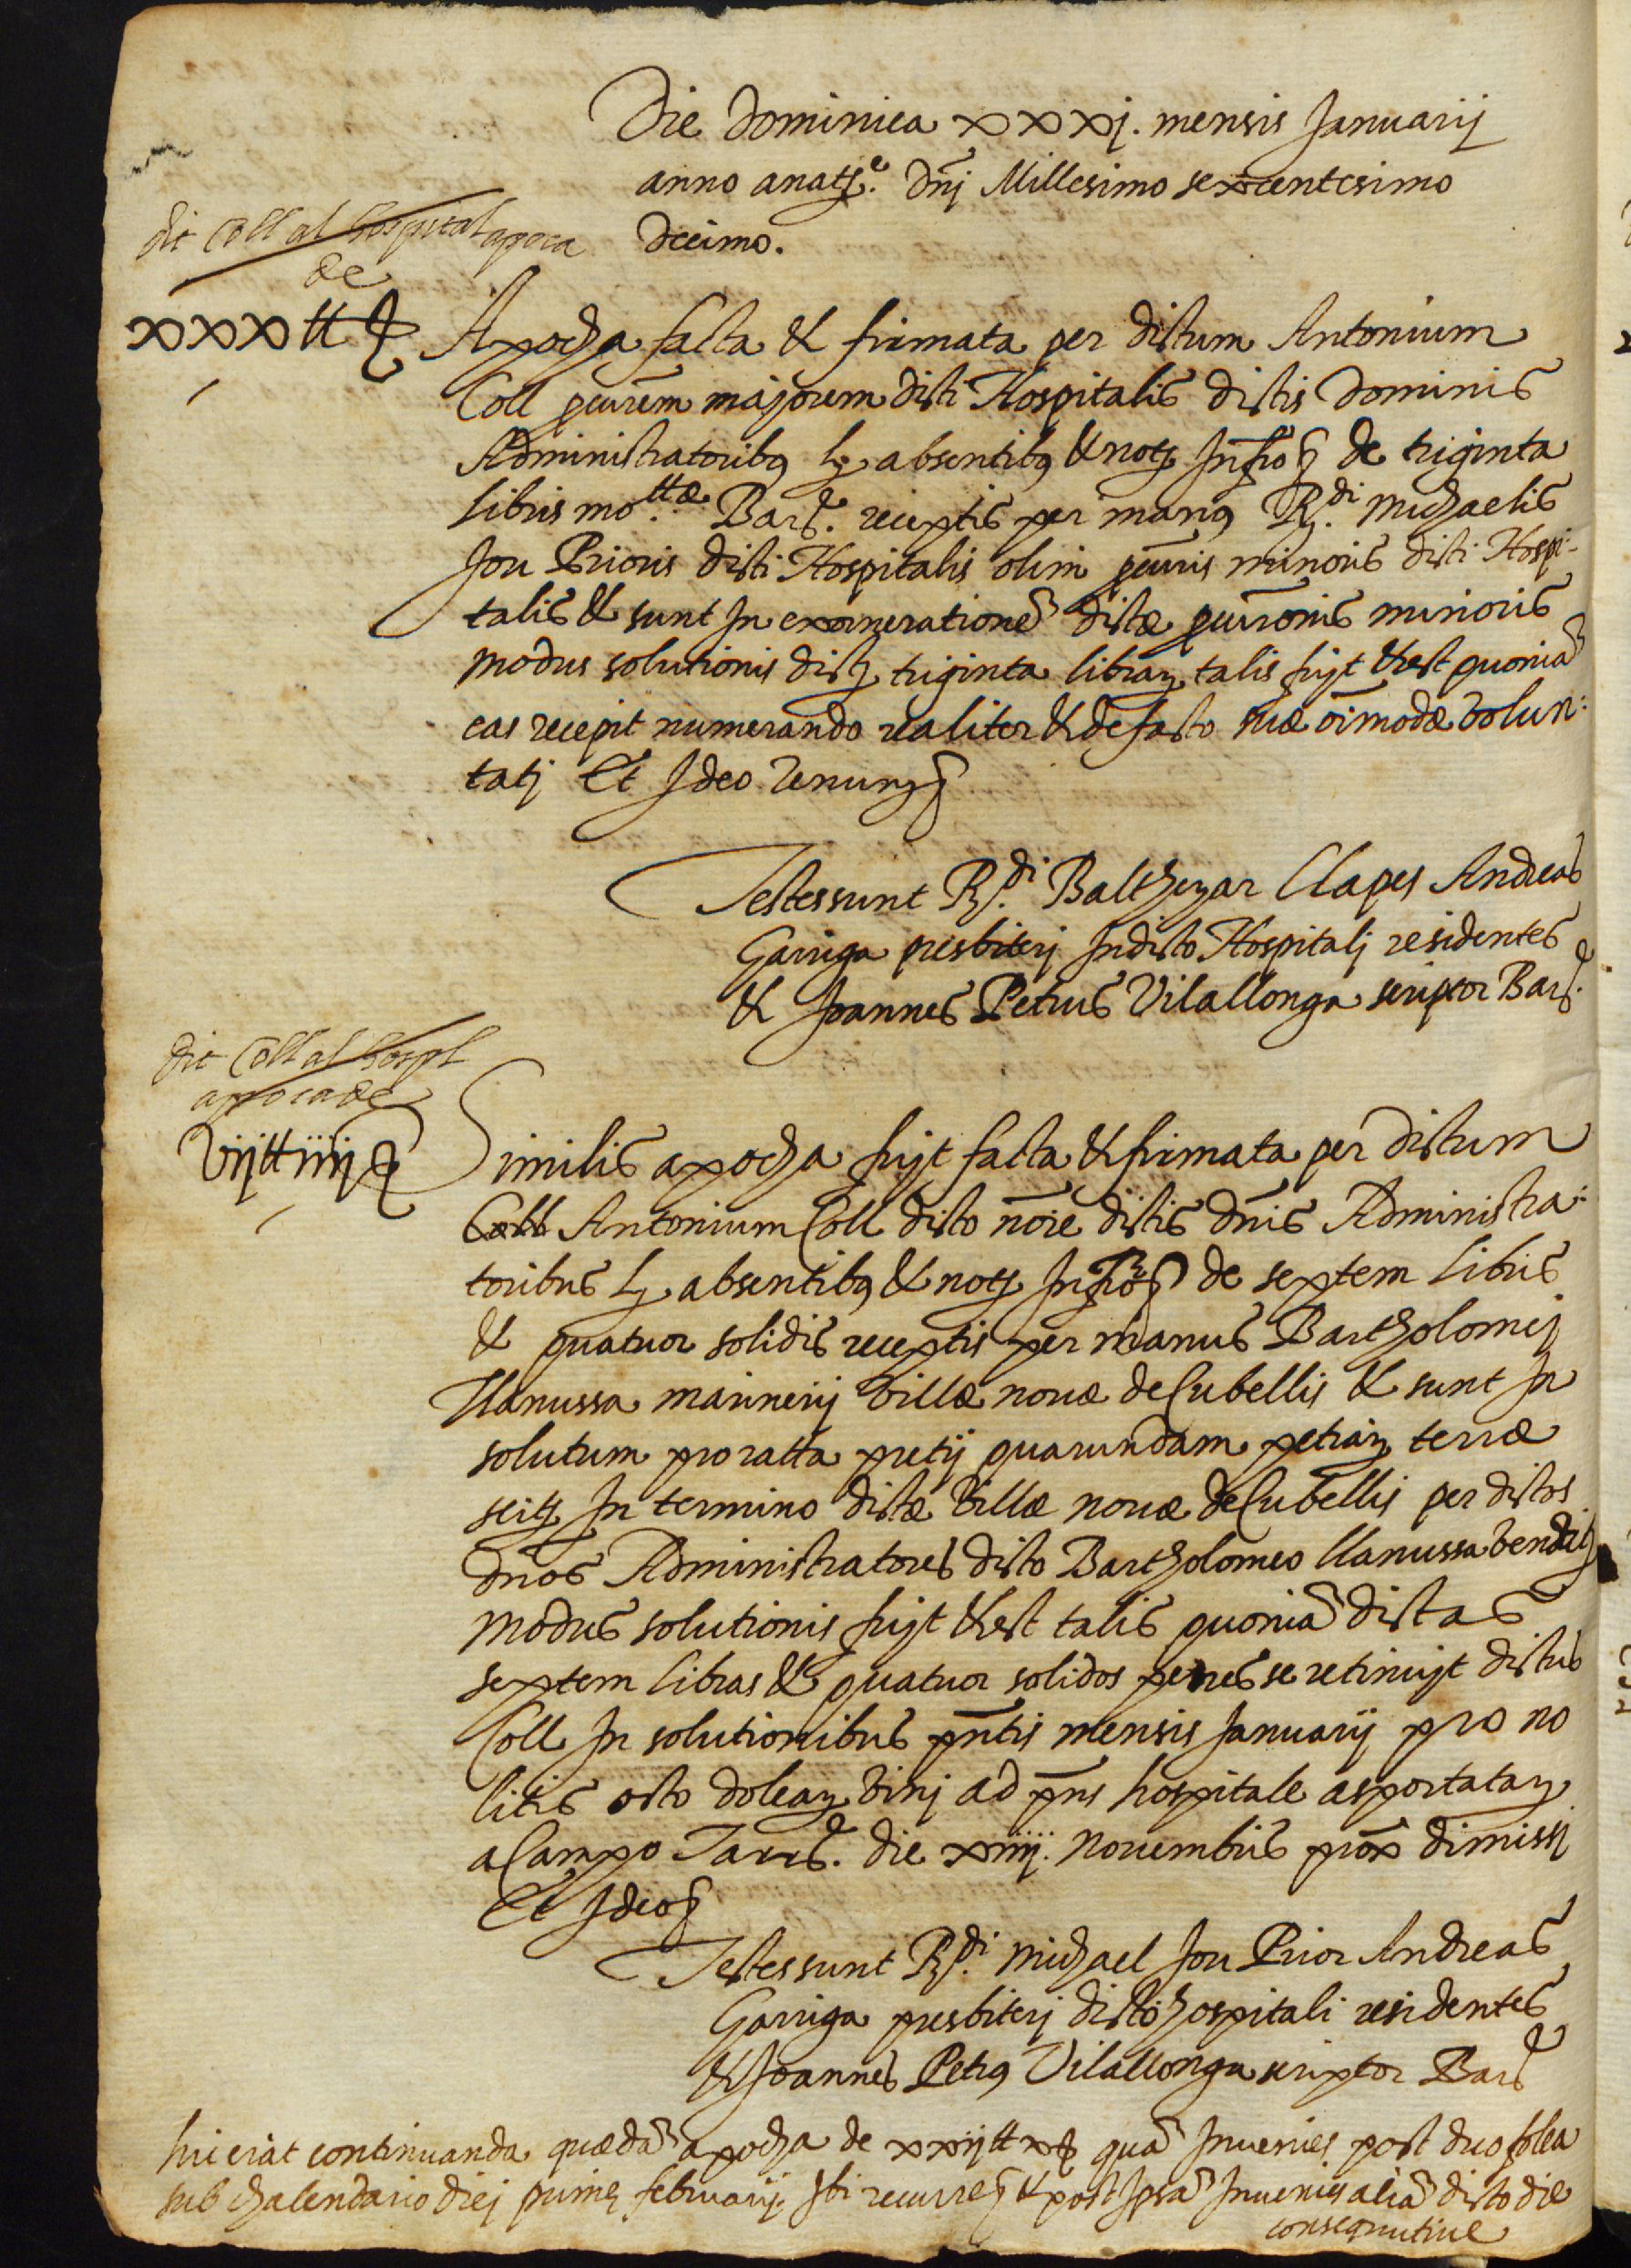 Die Dominica xxxj. mensis Januarij
anno a natte. Dnj Millesimo sexcentesimo
Decimo.
dit Coll al hospital apoca
de
xxxtt ẞ
Apocha facta & firmata per dictum Antonium
Coll procurem majorem dicti Hospitalis dictis Dominis
Administratoribq lz absentibq & noty Infro de triginta
libris mottæ. Bare. receptis per manq Rdi. Michaelis
Jou Prioris dicti Hospitalis olim procuris minoris dicti Hospi-
talis & sunt In exonerationē dictæ procuronis minoris
modus solutionis dictz triginta librarz talis fuyt & est quoniā
eas recepit numerando realiter & de facto suæ oīmodæ volun:
tatj Et Ideo Renun
Testes sunt Rdi. Balthezar Clapes Andreas
Garriga presbiterj In dicto Hospitalj residentes
& Joannes Petrus Vilallonga scriptor Bare.
dit Coll al hospl
apoca de
vijtt iiijẞ
Similis apocha fuyt facta & firmata per dictum
Coll Antonium Coll dicto nōie dictis dnīs Administra:
toribus lz absentibq & noty Infro de septem libris
& quatuor solidis receptis per manus Bartholomej
Llanussa marinerij villæ novæ de Cubellis & sunt In
solutum pro ratta pretij quarundam petiarz terræ
scitz In termino dictæ villæ novæ de Cubellis per dictos
dnōs Administratores dicto Bartholomeo Llanussa vendit
modus solutionis fuyt & est talis quoniā dictas
septem libras & quatuor solidos penes se retinuyt dictus
Coll In solutionibus pn̄tis mensis Januarij pro no
litis octo doliarz vinj ad pn̄s hospitale asportatarz
a Campo Tarre. die xiiij. Novembris prox̄ dimissj
Et Ideo
Testes sunt Rdi. Michael Jou Prior Andreas
Garriga presbiterj dicto hospitali residentes
& Joannes Petrq Vilallonga scriptor Bare
hic erat continuanda quædā apocha de xxijtt xẞ quā Invenies post duo folea
sub chalendario diej primę februarij. Ibi recurre & post Ipsā Invenies aliā dicto die
consequutive